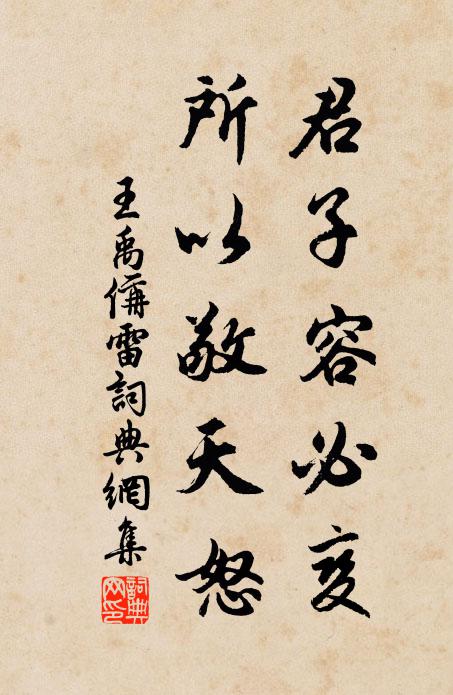 君子容必变
所以敬天怒
王禹偁雷詞典網集
詞典網印